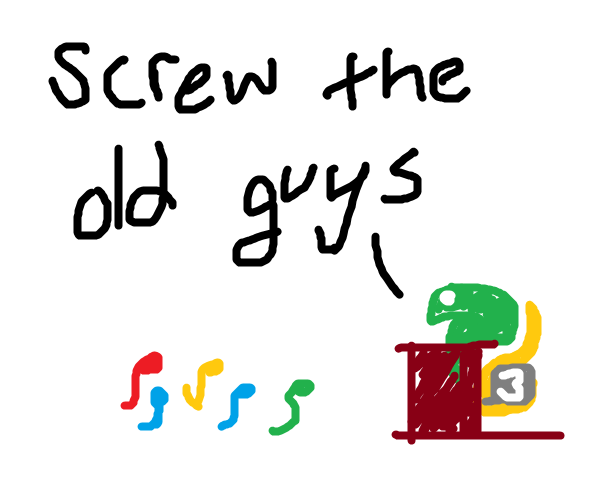 Screw the
old guys
3